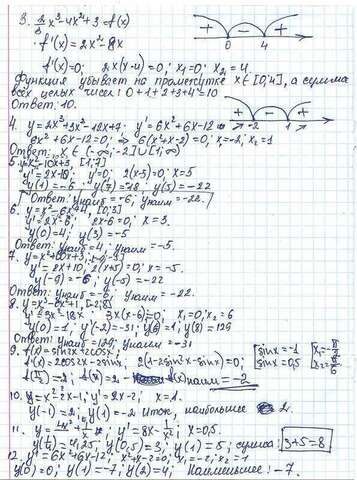 3. 2/3 x³-4x²+3=f(x)
f'(x)=2x²-8x
f'(x)=0; 2x(x-4)=0; x₁=0; x₂=4
+ - +
0 4
Функция убывает на промежутке x∈[0;4], а сумма
всех целых чисел: 0+1+2+3+4=10
Ответ: 10.
+ - +
-2 1
4. y=2x³+3x²-12x+7 y'=6x²+6x-12
6x²+6x-12=0; 6(x²+x-2)=0; x₁=-2; x₂=1
Ответ: x∈(-∞;-2]∪[1;∞)
5. y=x²-10x+3, [1;7]
y'=2x-10; y'=0; 2(x-5)=0; x=5
y(1)=-6 y(7)=-18 y(5)=-22
Ответ: унаиб=-6; унаим=-22.
6. y=x²-6x+4, [0;3]
y'=2x-6; 2x-6=0; x=3.
y(0)=4; y(3)=-5
Ответ: унаиб=4; унаим=-5.
7. y=x²+10x+3;
y'=2x+10; 2(x+5)=0; x=-5.
y(-9)=-6; y(-5)=-22
Ответ: унаиб=-6; унаим=-22.
8. y=x³-9x²+1, [-2;8]
y'=3x²-18x 3x(x-6)=0; x₁=0; x₂=6
y(0)=1; y'(-2)=-31; y(8)=129
Ответ: унаиб=129; унаим=-31
9. f(x)=sin2x+2cosx;
f'(x)=2cos2x-2sinx; 2(1-2sin²x-sinx)=0;
sinx=-1
sinx=0,5
f(x)наим=-2
10. y=x²-2x-1; y'=2x-2; x=1.
y(-1)=2; y(1)=-2 Итог, наибольшее 2.
11. y=4x²+1/x; y'=8x-1/x²; x=0,5.
y(1/4)=4,25; y(0,5)=3; y(1)=5; сумма: 3+5=8
12. y'=6x²+6x-12; x²+x-2=0; x₁=-2; x₂=1
y(0)=0; y(1)=-7; y(2)=4; Наименьшее: -7.